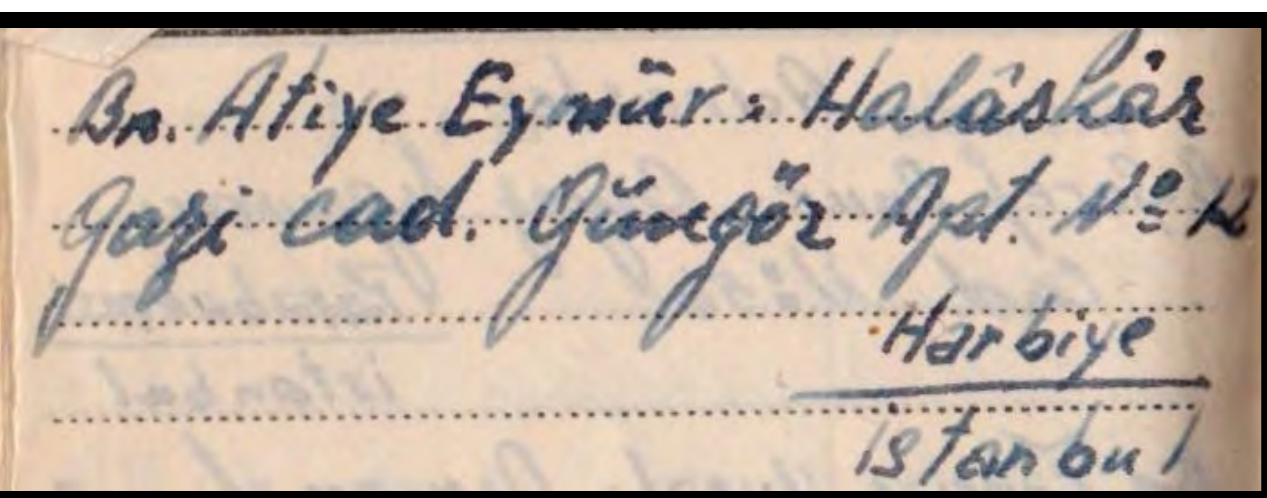 Bn. Atiye Eymür: Halâskâr
Gazi cad. Güngör Apt. Nº 12
Harbiye
istanbul